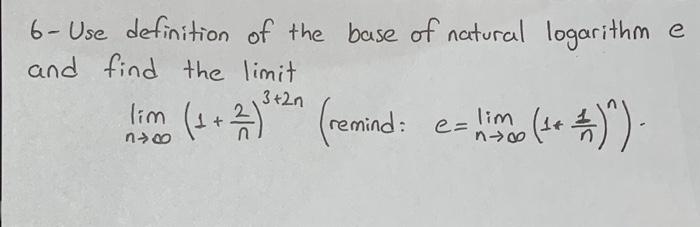 6- Use definition of the base of natural logarithm e
and find the limit
lim n→∞ (1 + 2/n)^3+2n (remind: e = lim n→∞ (1 + 1/n)^n).